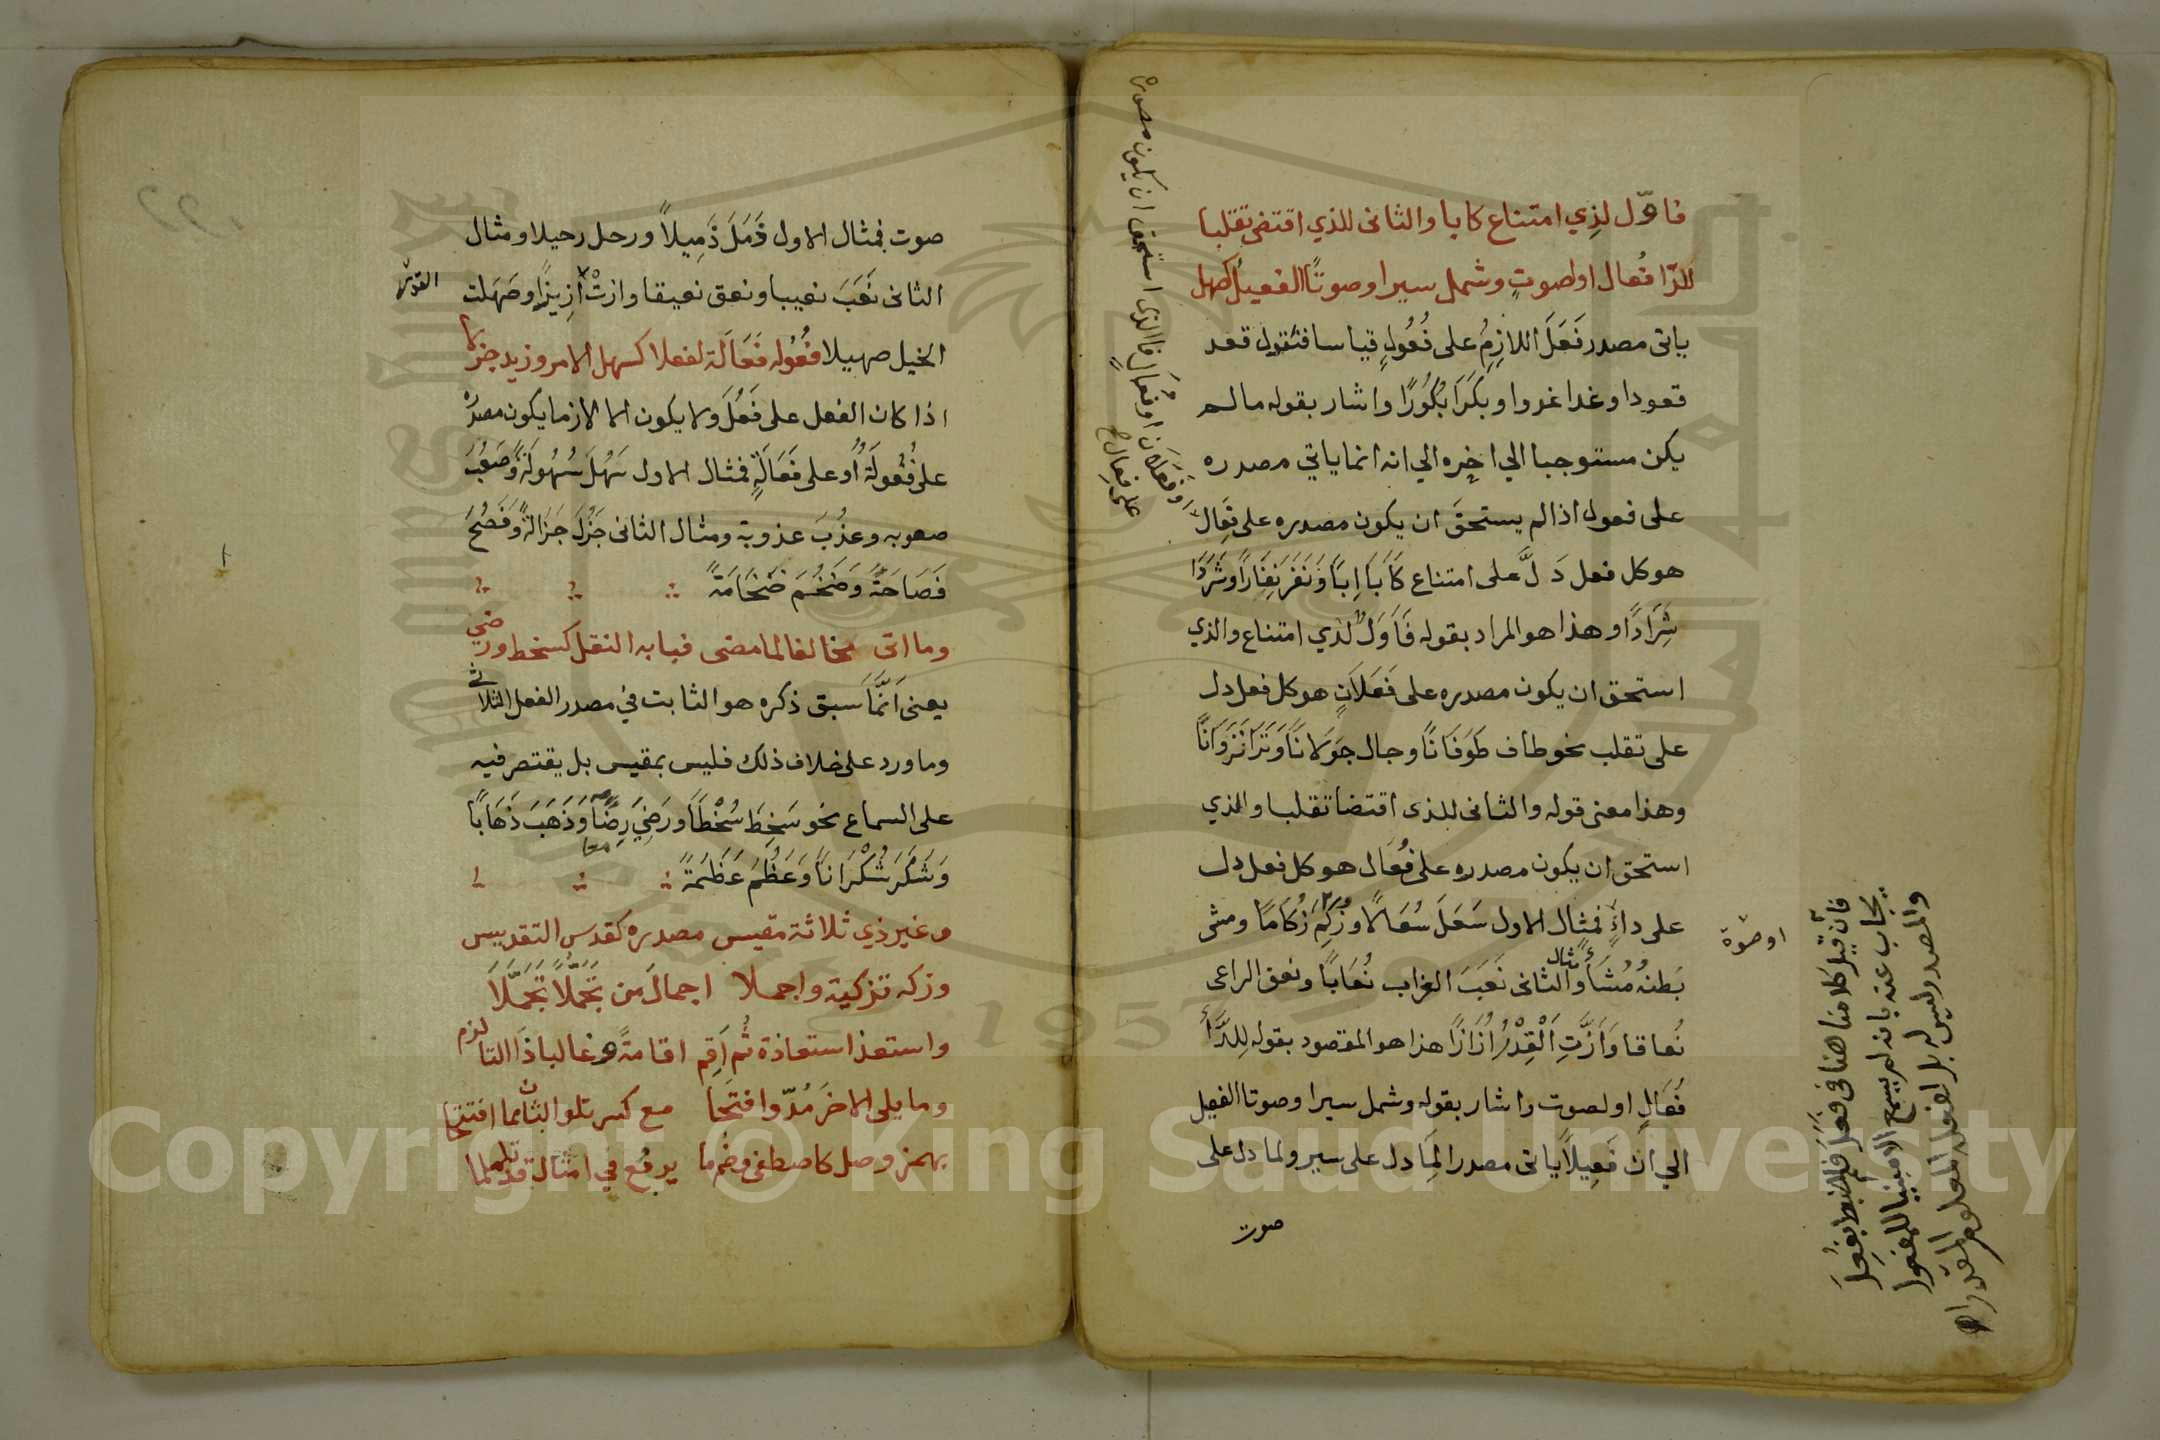 فاوّل لذي امتناع كابا والثانى للذي اقتضى تقلبا
للدّا فُعال اولصوتٍ وشمل سيرا وصوتًا الفعيل كصهل
ياتى مصدر فَعَلَ اللازِمُ على فُعُولٍ قياسا فتقول قعد
قعودا وغدا غدوا وبَكَرَ بُكُورًا واشار بقوله مالم
يكن مستوجبا الي اخره الي انه انما ياتي مصدره
على فعول اذا لم يستحقَ ان يكون مصدره على فِعَالٍ
هو كل فعل دَلَّ على امتناع كَاَبَا اِبَاً وَنَفَرَ نِفَارًا وشَرَدَ
شِرَادًا وهذا هو المراد بقوله فَاَوَلٌ لذي امتناع والذي
استحق ان يكون مصدره على فَعَلاَنٍ هو كل فعل دل
على تقلب نحو طاف طَوَفَانًا وجال جَوَلانًا وَنَزَا نَزَوَانًا
وهذا معنى قوله والثانى للذى اقتضا تقلبا والذي
استحق ان يكون مصدره على فُعَال هو كل فعل دل
على داءٍ فمثال الاول سَعَلَ سُعَالًا وزُكِمَ زُكَامًا ومشى
بَطنُه مُشَاءً ومثال الثانى نَعَبَ الغراب نُعَابًا ونعق الراعى
نُعاقا وَاَزَّتِ اَلْقِدْرُ اُزَازًا هذا هو المقصود بقوله لِلدَّاءِ
فُعَالٍ اولصوت واشار بقوله وشمل سيرا وصوتا الفعيل
الي اَن فَعِيلاً ياتى مصدرا لِمَا دل على سير ولما دل على
صوت
وفَعَلَان او فُعَالٍ فالذى استحق ان يكون مصدره
على فِعَالٍ
او صوت
فان قيل كلامنا هنا فى فَعَلَ فلم ضبط بفُعِلَ
يجاب عنه بانه لم يسمع الا مبنيا للمفعول
والمصدر ليس له بل لفعله المعلوم المقدر
صوت فمثال الاول ذَمَلَ ذَمِيلاً ورحل رحيلا ومثال
الثانى نَعَبَ نعيبا ونعق نعيقا وازتْ اَزِيزًا وصَهَلت
القدر
الخيل صهيلا فُعُوله فَعَالَة لفعلا كسهل الامر وزيد جزلا
اذا كان الفعل على فَعُلَ ولا يكون الا لازما يكون مصدره
على فُعُولَةٍ اَو على فَعَالَةٍ فمثال الاول سَهُلَ سُهُولَةً وصَعُبَ
صعوبه وعذُبَ عذوبة ومثال الثانى جَزُلَ جَزَالةً وَفَصُحَ
فَصَاحَةً وَضَخُمَ ضَخَامَةً
وما اتى مخالفا لما مضى فبابه النقل كسخط ورضي
يعنى اَنَّمَا سبق ذكره هو الثابت في مصدر الفعل الثلاثي
وما ورد على خلاف ذلك فليس بمقيس بل يقتصر فيه
على السماع نحو سَخِطَ سُخْطًا ورَضِيَ رِضًا وَذَهَبَ ذَهَابًا
وَشَكَرَ شُكْرَانًا وَعَظُمَ عَظَمَةً
وغير ذي ثلاثة مقيس مصدره كقدس التقديس
وزكه تزكية واجملا اجمالَ من تَجَمُّلاً تَجَمَّلَا
واستعذ استعاذة ثُم اَقِم اقامةً وغالبا ذَا التا لزم
وما يلى الاخرَ مُدّ وافتَحا مع كسر تلو الثانِ مما افتتحا
بهمز وصل كاصطفى وضُم ما يربَع في امثال قد تلملما